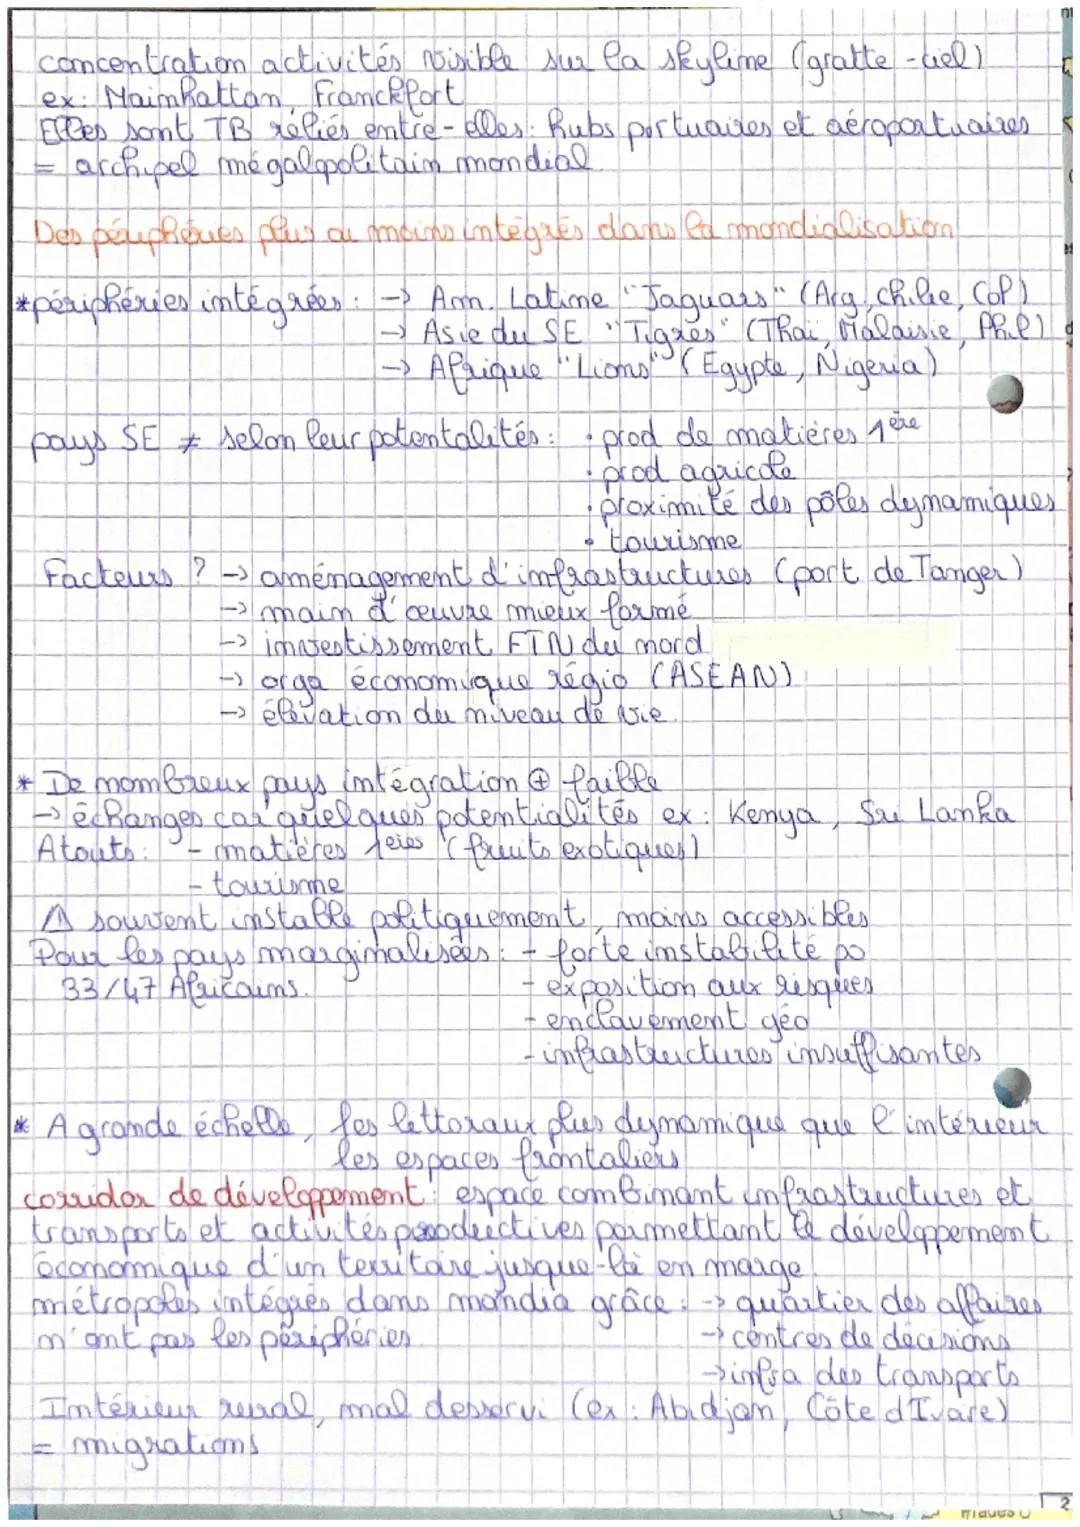 concentration activités visible sur la skyline (gratte-ciel)
ex: Mainhattan, Franckfort
Elles sont TB réliés entre-elles: hubs portuaires et aéroportuaires
= archipel mégalopolitain mondial.
Des périphéries plus ou moins intégrés dans la mondialisation
*périphéries intégrées: -> Am. Latine "Jaguars" (Arg, Chilie, Col)
-> Asie du SE "Tigres" (Thai, Malaisie, Phil)
-> Afrique "Lions" (Egypte, Nigeria)
pays SE ≠ selon leur potentalités: • prod de matières 1ère
• prod agricole
• proximité des pôles dynamiques
• tourisme
Facteurs ? -> aménagement d'infrastructures (port de Tanger)
-> main d'œuvre mieux formé
-> investissement FTN du nord
-> orga économique régio (ASEAN)
-> élévation du niveau de vie.
* De nombreux pays intégration ⊕ faible
-> échanges car quelques potentialités ex: Kenya, Sri Lanka
Atouts: - matières 1eres (fruits exotiques)
- tourisme
⚠ souvent instable politiquement, moins accessibles
Pour les pays marginalisées: - forte instabilité po
33/47 Africains. - exposition aux risques
- enclavement géo
- infrastructures insuffisantes
* A grande échelle, les littoraux plus dynamique que l'intérieur
les espaces frontaliers
corridor de développement: espace combinant infrastructures et
transports et activités productives permettant le développement
économique d'un territoire jusque-là en marge.
métropoles intégrés dans mondia grâce: -> quartier des affaires
n'ont pas les périphéries. -> centres de décisions
-> infra des transports
Intérieur rural, mal desservi (ex: Abidjan, Côte d'Ivoire)
= migrations
2